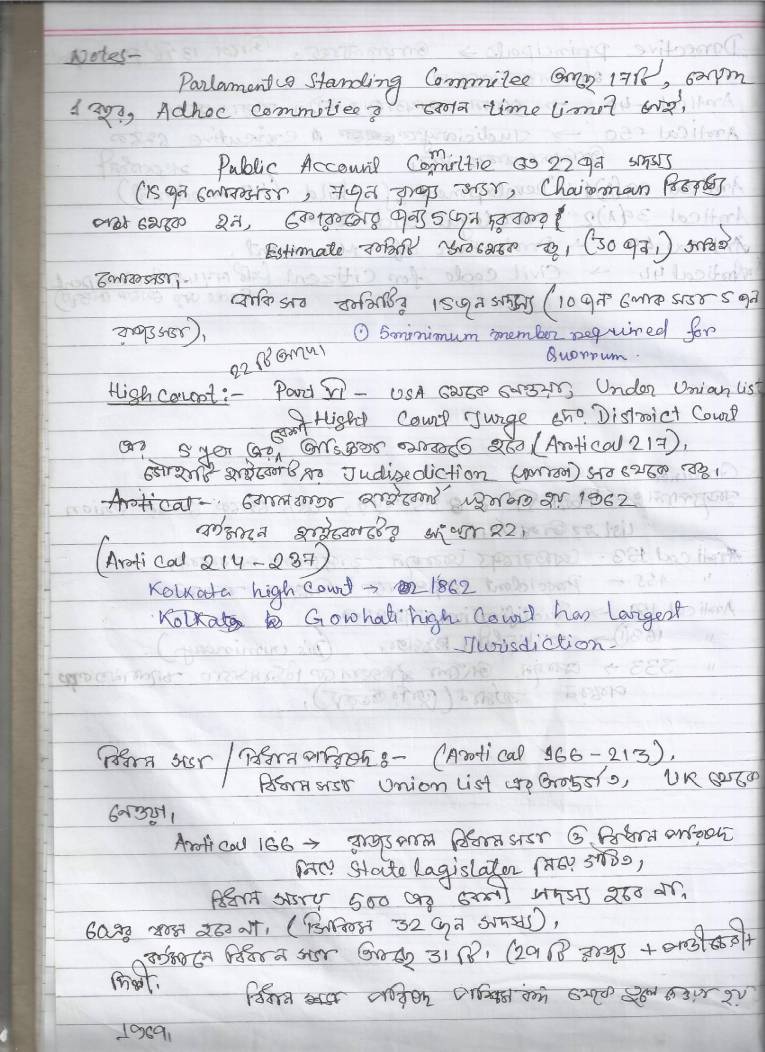 Notes-
Parlament এ Standing Commitee আছে 17টি, মেয়াদ
1 বছর, Adhoc committee র কোন time limit নেই,
Public Account Committie এ 22 জন সদস্য
(15 জন লোকসভা, 7জন রাজ্য সভা, Chairman বিরোধী
পক্ষ থেকে হন, কোরামের জন্য 5জন দরকার।
Estimate কমিটি সবথেকে বড়। (30 জন।) সবাই
লোকসভা।
বাকি সব কমিটির 15জন সদস্য (10 জন লোক সভা 5 জন
রাজ্যসভা),
5 minimum member required for
Quorrum.
22 টি আছে।
High Court:- Part VI - USA থেকে নেওয়া, Under Union list
Hight Court Jurge কে District Court
এর 5 বছর এর বেশী অভিজ্ঞতা থাকতে হবে (Artical 217),
গৌহাটি হাইকোর্ট এর Judisediction (এলাকা) সব থেকে বড়,
Artical- কোলকাতা হাইকোর্ট স্থাপিত হয় 1862
বর্তমানে হাইকোর্টের সংখ্যা 22,
(Artical 214 - 237)
Kolkata high Court → 1862
Kolkata Gowhati high Court has largest
Jurisdiction-
বিধান সভা / বিধান পরিষদ :- (Artical 166 - 213),
বিধান সভা Union List এর অন্তর্গত, UK থেকে
নেওয়া।
Artical 166 → রাজ্যপাল বিধানসভা ও বিধান পরিষদ
নিয়ে State Lagislater গঠিত,
বিধান সভায় 500 এর বেশী সদস্য হবে না,
60 এর কম হবে না, (সিকিম 32 জন সদস্য),
বর্তমানে বিধান সভা আছে 31 টি। (29 টি রাজ্য + পন্ডীচেরী +
দিল্লী,
বিধান পরিষদ পশ্চিম বঙ্গ থেকে তুলে দেওয়া হয়
1969,